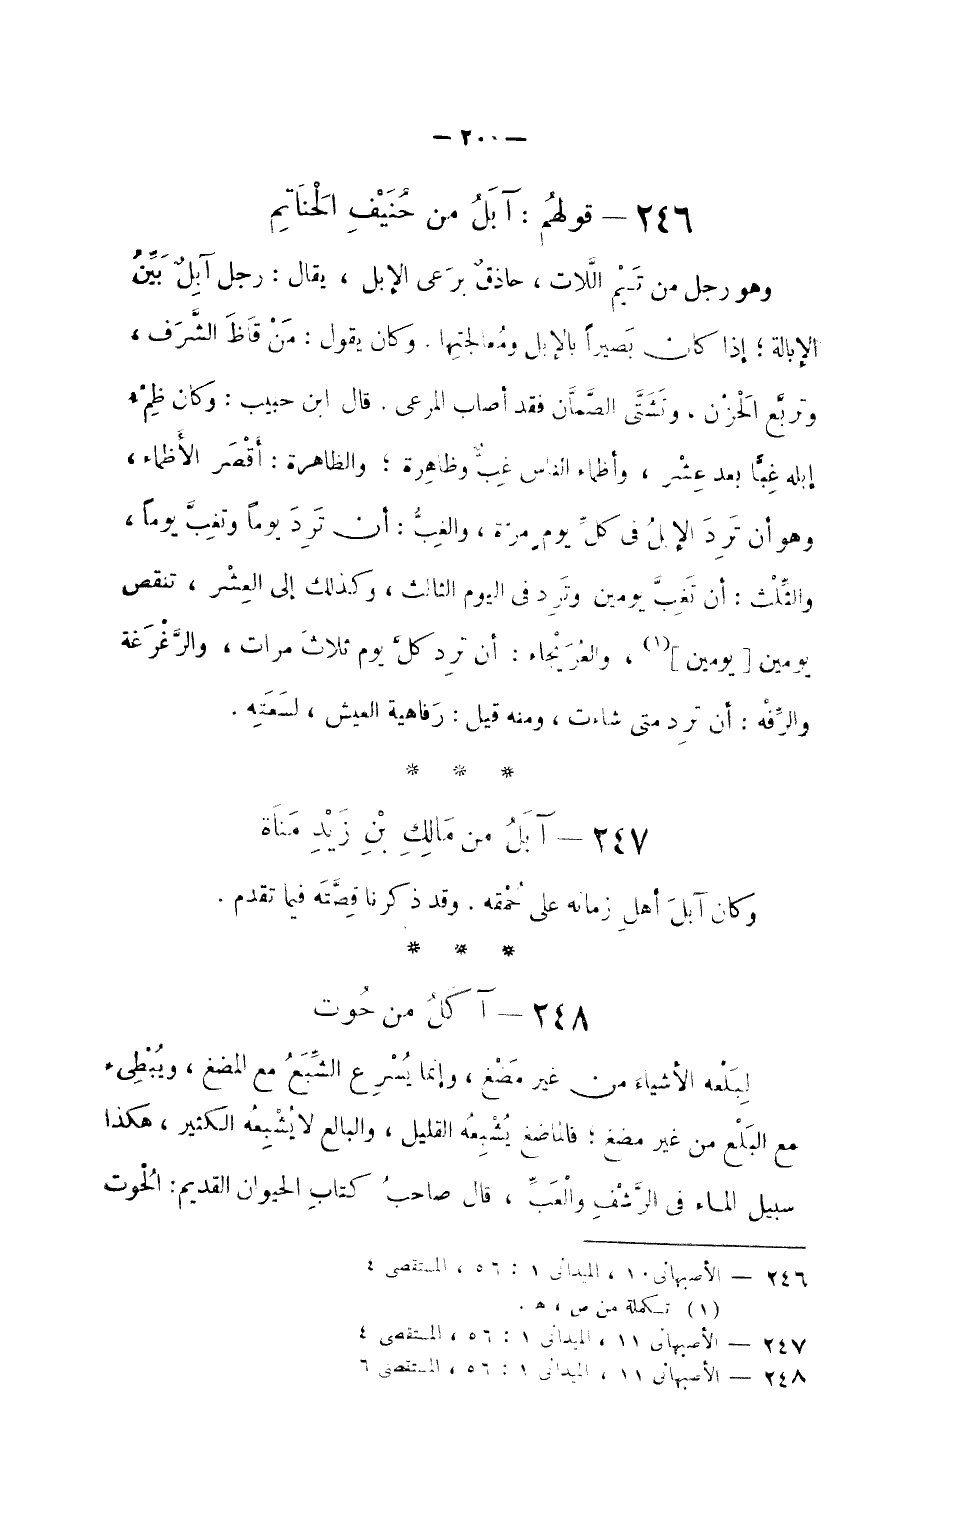 — ٢٠٠ —
٢٤٦ — قولهُم : آبَلُ من حُنَيْفِ الْحَنَاتِمِ
وهو رجل من تَيْمِ اللَّات ، حاذقٌ برَعى الإبل ، يقال : رجل آبِلٌ بَيِّنُ
الإبالة ؛ إذا كان بَصيراً بالإبل ومُعالجتِها . وكان يقول : مَنْ قَاظَ الشَّرَف ،
وتربَّع الْحَزْن . وتَشَتَّى الصَّمَّان فقد أصاب المرعى . قال ابن حبيب : وكان ظِمْءُ
إبله غِبًّا بعد عِشْر ، وأظماء الناس غِبٌّ وظاهِرة ؛ والظاهرة : أَقْصَر الأَظماء ،
وهو أن تَرِدَ الإبلُ فى كلِّ يومٍ مرّة ، والغِبُّ : أن تَرِدَ يوماً وتغِبَّ يوماً ،
والثِّلْث : أن تَغِبَّ يومين وتَرِد فى اليوم الثالث ، وكذلك إلى العِشْر ، تنقص
يومين [ يومين ](١) ، والعُرَيْجاء : أن ترِد كلَّ يوم ثلاثَ مرات ، والرَّغْرَغَة
والرِّفْه : أن ترِد متى شاءت ، ومنه قيل : رَفاهية العيش ، لسَعَتِه .
* * *
٢٤٧ — آبَلُ من مَالِكِ بْنِ زَيْدِ مَنَاة
وكان آبلَ أهلِ زمانه على حُمْقه . وقد ذكرنا قِصَّتَه فيما تقدم .
* * *
٢٤٨ — آكَلُ من حُوت
لِبَلْعه الأشياءَ من غير مَضْغ ، وإنما يُسْرِع الشِّبَعُ مع المضغ ، ويُبْطِىء
مع البَلْع من غير مضغ ؛ فالماضغ يُشْبِعُه القليل ، والبالع لا يُشْبِعُه الكثير ، هكذا
سبيل الماء فى الرَّشْفِ والْعَبِّ ، قال صاحبُ كتابِ الحيوان القديم : الْحُوت
٢٤٦ — الأصبهانى ١٠ ، الميدانى ١ : ٥٦ ، المستقصى ٤
(١) تكملة من ص ، ه .
٢٤٧ — الأصبهانى ١١ ، الميدانى ١ : ٥٦ ، المستقصى ٤
٢٤٨ — الأصبهانى ١١ ، الميدانى ١ : ٥٦ ، المستقصى ٦